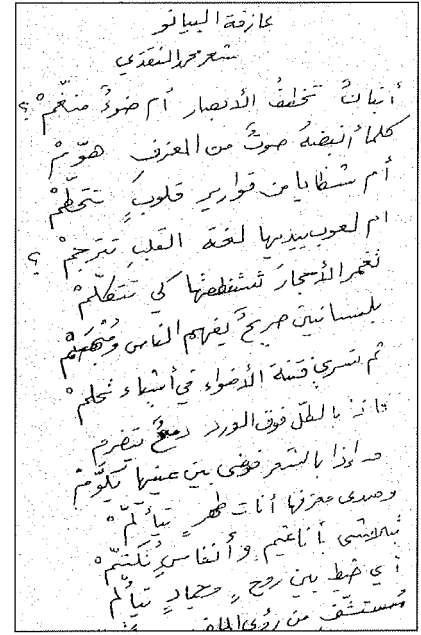 عازفة البيانو
شعر محمد النقدي
أبنانٌ تخطفُ الأبصار أم ضوءٌ منغّمْ ؟
كلما أنبضهُ صوتٌ من المعزفِ هوّمْ
أم شظايا من قوارير قلوبٍ تتحطّمْ
ام لعوب بيديها لغة القلبِ تترجمْ ؟
تغمر الأحجارَ تستنطقها كي تتكلّمْ
بلسانين صريحٌ يفهم الناس ومُبْهَمْ
ثم تسري فتنة الأضواء في أشياء تحلمْ
فاذا بالطلّ فوق الورد دمعٌ يتضرم
واذا بالشعر فوضى بين عينيها يكوَّمْ
وصدى معزفها أنات طهرٍ تتألّمْ
تتلاشى بأناغيم وأنفاسٍ تكتّمْ
أي خيط بين روحٍ وجمادٍ يتألم
مستشفّ من رؤى